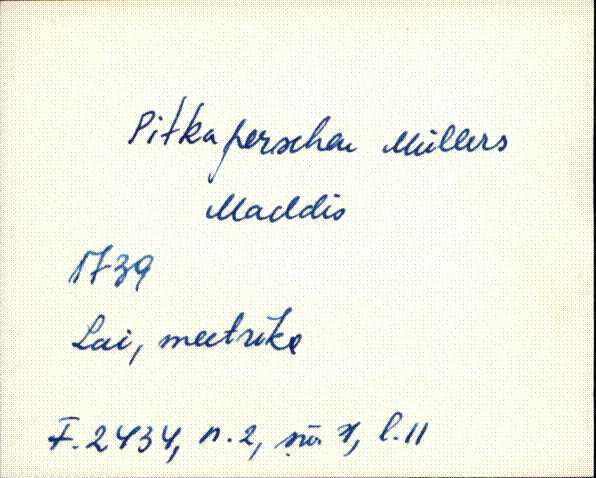 Pitka perschen Müllers
Maddis
1739
Lai, meetrika
F. 2434, n. 2, sü. 1, l. 11